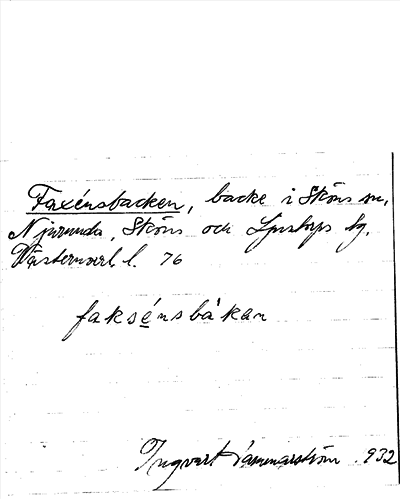 Faxénsbacken, backe i Sköns sn,
Njurunda, Sköns och Ljustorps tg,
Västernorrl. l. 76
faksénsbàkan
Ingvart Hammarström 932